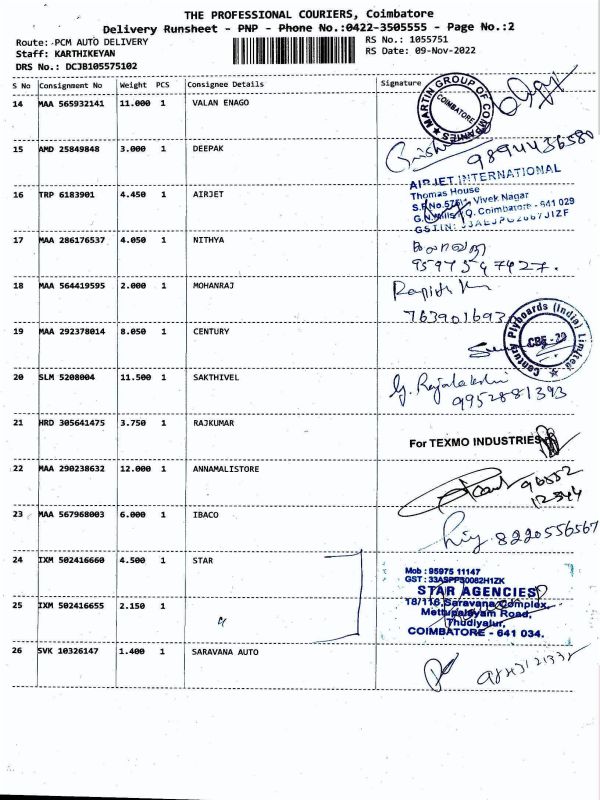 THE PROFESSIONAL COURIERS, Coimbatore
Delivery Runsheet - PNP - Phone No.:0422-3505555 - Page No.:2
Route: PCM AUTO DELIVERY
RS No.: 1055751
Staff: KARTHIKEYAN
RS Date: 09-Nov-2022
DRS No.: DCJB105575102
S No Consignment No Weight PCS Consignee Details Signature
14 MAA 565932141 11.000 1 VALAN ENAGO
MARTIN GROUP OF COMPANIES
COIMBATORE
15 AMD 25849848 3.000 1 DEEPAK
9894436580
16 TRP 6183901 4.450 1 AIRJET
AIRJET INTERNATIONAL
Thomas House
Vivek Nagar
Coimbatore - 641 029
17 MAA 286176537 4.050 1 NITHYA
9597547427.
18 MAA 564419595 2.000 1 MOHANRAJ
763901693
19 MAA 292378014 8.050 1 CENTURY
Century Plyboards (India) Limited
CBE - 29
20 SLM 5208004 11.500 1 SAKTHIVEL
G. Rajalakshmi
9952881393
21 HRD 305641475 3.750 1 RAJKUMAR
For TEXMO INDUSTRIES
22 MAA 290238632 12.000 1 ANNAMALISTORE
96552
12344
23 MAA 567968003 6.000 1 IBACO
8220556567
24 IXM 502416660 4.500 1 STAR
Mob : 95975 11147
GST : 33ASPPS0082H1ZK
STAR AGENCIES
18/116, Saravana Complex,
Mettupalayam Road,
Thudiyalur,
COIMBATORE - 641 034.
25 IXM 502416655 2.150 1
26 SVK 10326147 1.400 1 SARAVANA AUTO